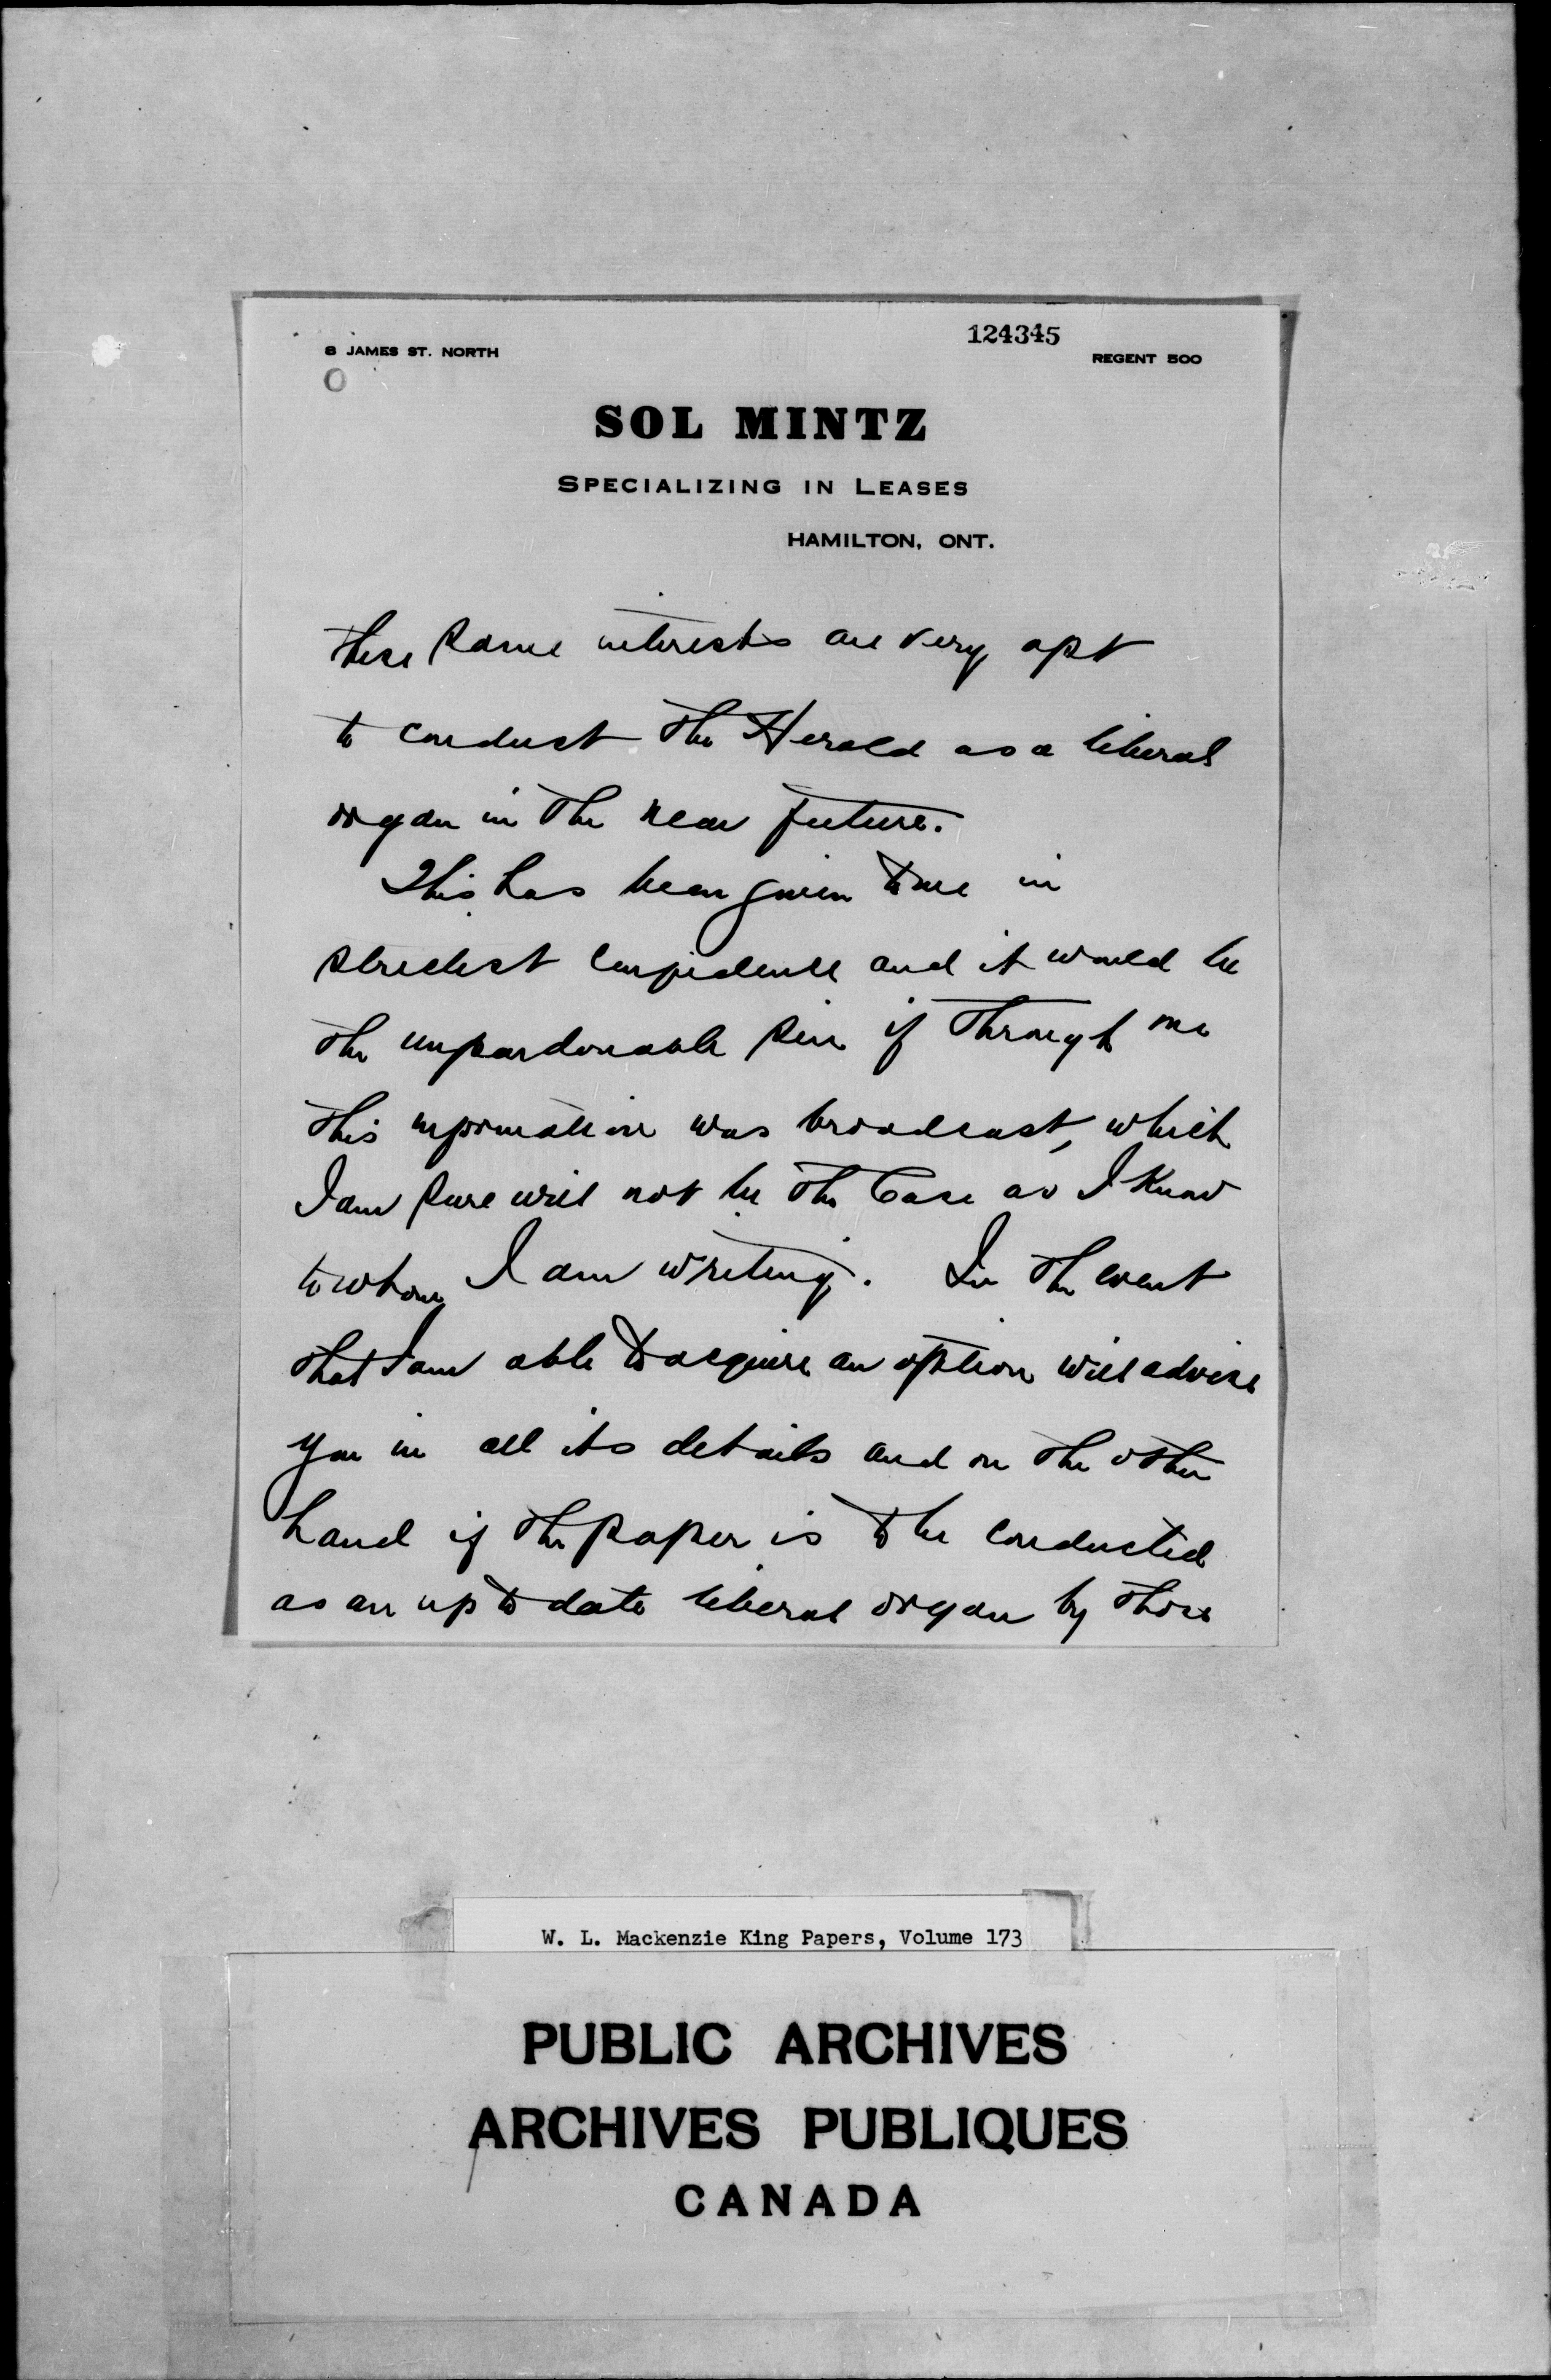 124345
8 JAMES ST. NORTH
REGENT 500
SOL MINTZ
SPECIALIZING IN LEASES
HAMILTON, ONT.
these same interests are very apt
to conduct the Herald as a liberal
organ in the near future.
This has been given to me in
strictest confidence and it would be
the unpardonable sin if through me
this information was broadcast, which
I am sure will not be the case as I know
to whom I am writing. In the event
that I am able to acquire an option will advise
you in all its details and on the other
hand if the paper is to be conducted
as an up to date liberal organ by those
W. L. Mackenzie King Papers, Volume 173
PUBLIC ARCHIVES
ARCHIVES PUBLIQUES
CANADA